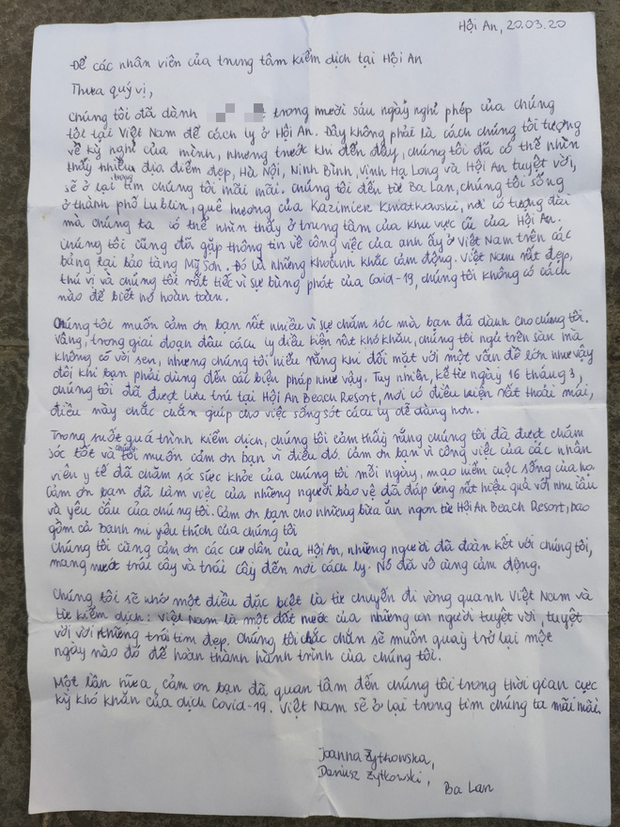 Hội An, 20.03.20
Để các nhân viên của trung tâm kiểm dịch tại Hội An
Thưa quý vị,
Chúng tôi đã dành trong mười sáu ngày nghỉ phép của chúng
tôi tại Việt Nam để cách ly ở Hội An. Đây không phải là cách chúng tôi tưởng
về kỳ nghỉ của mình, nhưng trước khi đến đây, chúng tôi đã có thể nhìn
thấy nhiều địa điểm đẹp, Hà Nội, Ninh Bình, Vịnh Hạ Long và Hội An tuyệt vời,
sẽ ở lại trong tim chúng tôi mãi mãi. Chúng tôi đến từ Ba Lan, chúng tôi sống
ở thành phố Lublin, quê hương của Kazimierk Kwiatkowski, nơi có tượng đài
mà chúng ta có thể nhìn thấy ở trung tâm của khu vực cũ của Hội An.
Chúng tôi cũng đã gặp thông tin về công việc của anh ấy ở Việt Nam trên các
bảng tại bảo tàng Mỹ Sơn. Đó là những khoảnh khắc cảm động. Việt Nam rất đẹp,
thú vị và chúng tôi rất tiếc vì sự bùng phát của Covid-19, chúng tôi không có cách
nào để biết nó hoàn toàn.
Chúng tôi muốn cảm ơn bạn rất nhiều vì sự chăm sóc mà bạn đã dành cho chúng tôi.
Vâng, trong giai đoạn đầu cách ly điều kiện rất khó khăn, chúng tôi ngủ trên sàn mà
không có vòi sen, nhưng chúng tôi hiểu rằng khi đối mặt với một vấn đề lớn như vậy
đôi khi bạn phải dùng đến các biện pháp như vậy. Tuy nhiên, kể từ ngày 16 tháng 3,
chúng tôi đã được lưu trú tại Hội An Beach Resort, nơi có điều kiện rất thoải mái,
điều này chắc chắn giúp cho việc sống sót cách ly dễ dàng hơn.
Trong suốt quá trình kiểm dịch, chúng tôi cảm thấy rằng chúng tôi đã được chăm
sóc tốt và chúng tôi muốn cảm ơn bạn vì điều đó. Cảm ơn bạn vì công việc của các nhân
viên y tế đã chăm sóc sức khỏe của chúng tôi mỗi ngày, mạo hiểm cuộc sống của họ.
Cảm ơn bạn đã làm việc của những người bảo vệ đã đáp ứng rất hiệu quả với nhu cầu
và yêu cầu của chúng tôi. Cảm ơn bạn cho những bữa ăn ngon từ Hội An Beach Resort, bao
gồm cả Banh mi yêu thích của chúng tôi
Chúng tôi cũng cảm ơn các cư dân của Hội An, những người đã đoàn kết với chúng tôi,
mang nước trái cây và trái cây đến nơi cách ly. Nó đã vô cùng cảm động.
Chúng tôi sẽ nhớ một điều đặc biệt là từ chuyến đi vòng quanh Việt Nam và
từ kiểm dịch: Việt Nam là một đất nước của những con người tuyệt vời, tuyệt
vời với những trái tim đẹp. Chúng tôi chắc chắn sẽ muốn quay trở lại một
ngày nào đó để hoàn thành hành trình của chúng tôi.
Một lần nữa, cảm ơn bạn đã quan tâm đến chúng tôi trong thời gian cực
kỳ khó khăn của dịch Covid-19. Việt Nam sẽ ở lại trong tim chúng ta mãi mãi.
Joanna Żytkowska,
Dariusz Żytkowski,
Ba Lan